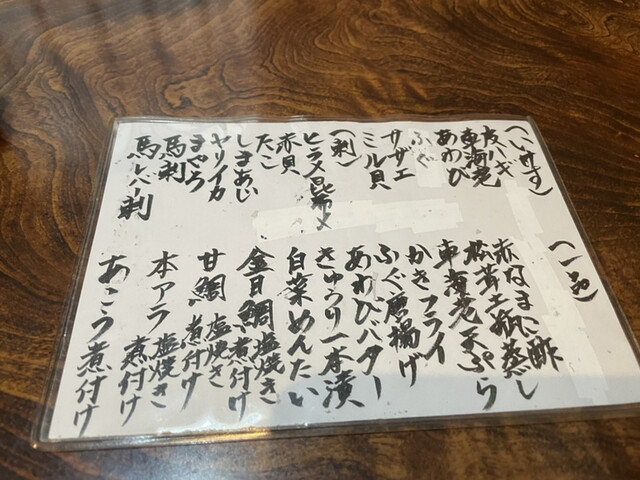 (いけす)
皮ハギ
車海老
あわび
ふぐ
サザエ
ミル貝
(刺)
ヒラメ昆布〆
赤貝
たこ
しまあじ
ヤリイカ
まぐろ
馬刺
馬レバ刺
(一品)
赤なまこ酢
松茸土瓶蒸し
車海老天ぷら
かきフライ
ふぐ唐揚げ
あわびバター
きゅうり一本漬
白菜めんたい
金目鯛 塩焼き 煮付け
甘鯛 塩焼き 煮付け
本アラ 塩焼き 煮付け
あこう煮付け